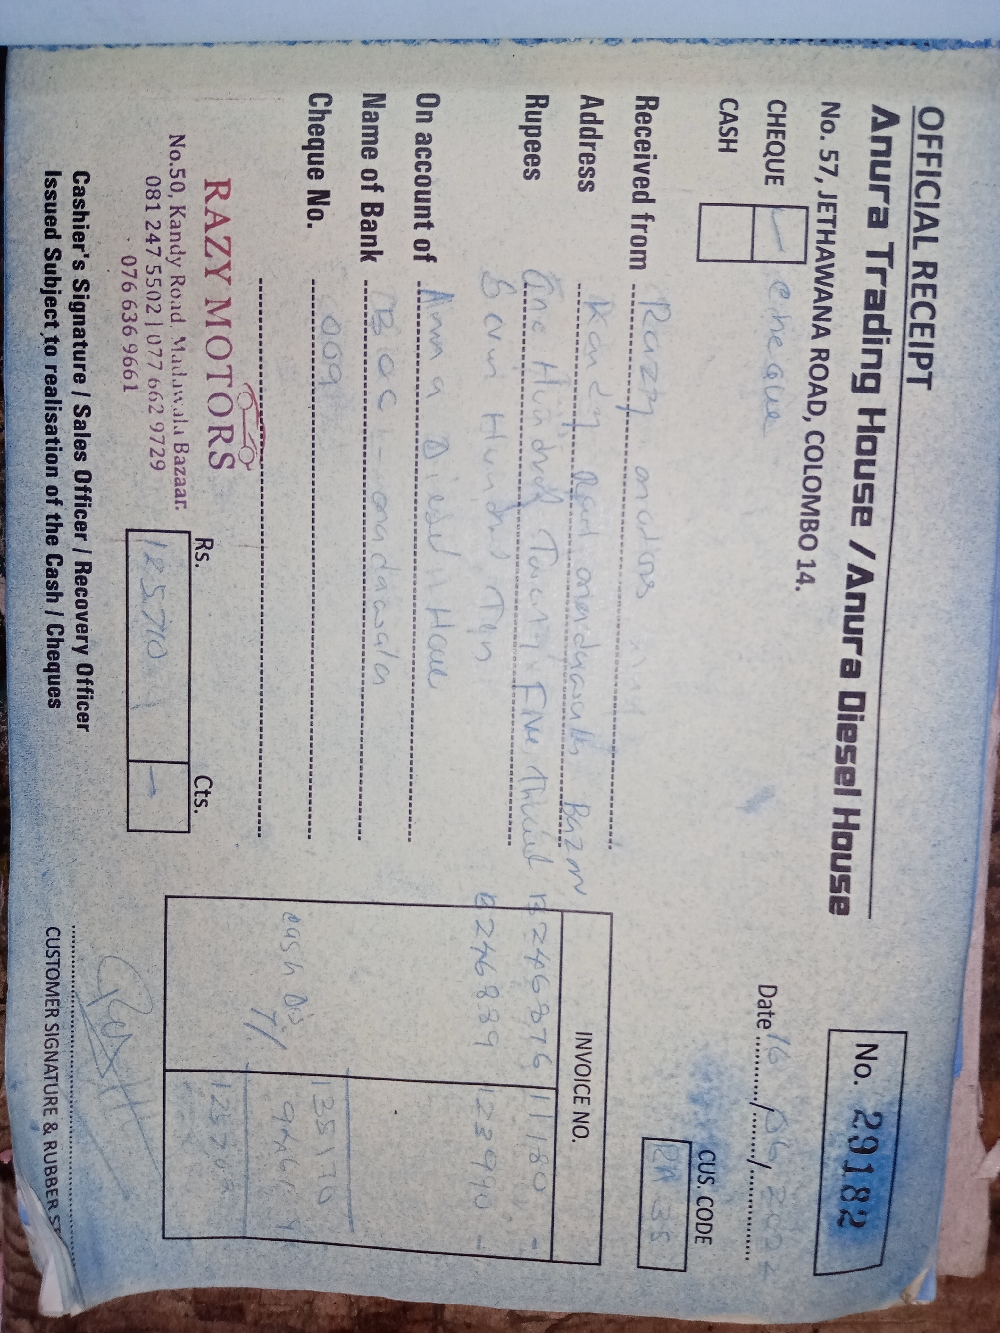 OFFICIAL RECEIPT
Anura Trading House / Anura Diesel House
No. 57, JETHAWANA ROAD, COLOMBO 14.
No. 29182
CHEQUE cheque
CASH
Date 16/06/2022
CUS. CODE
RA 35
Received from Razy motors
Address Kandy Road madawala Bazar
Rupees One Hundred Twenty Five Thousand
Seven Hundred Ten
On account of Anura Diesel House
Name of Bank BOC - madawala
Cheque No. 009
INVOICE NO.
B 246876 11180 -
B 246889 123990 -
135170
cash Dis 7%
RAZY MOTORS
No.50, Kandy Road Madawala Bazaar.
081 247 5502 | 077 662 9729
076 636 9661
Rs. Cts.
125710 -
Cashier's Signature / Sales Officer / Recovery Officer
Issued Subject to realisation of the Cash / Cheques
CUSTOMER SIGNATURE & RUBBER